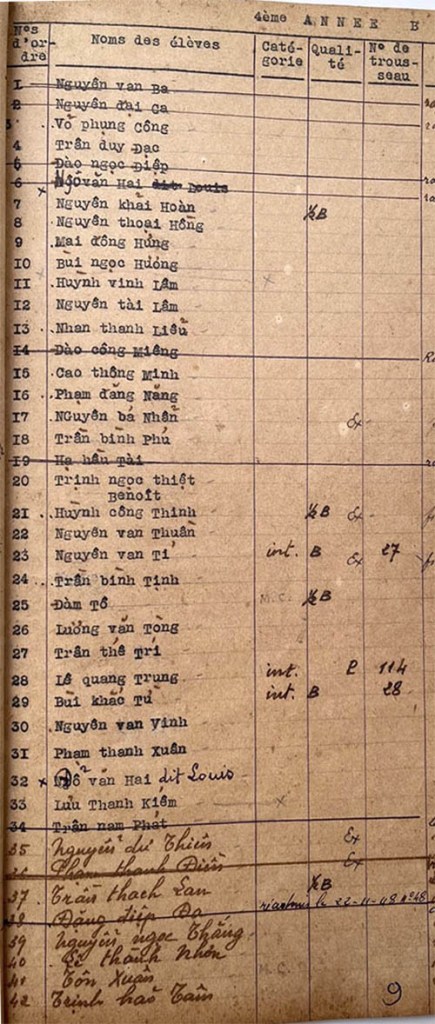 4ème ANNEE B
Nos d'ordre Noms des élèves Catégorie Qualité No de trousseau
1 Nguyễn van Ba
2 Nguyễn đại Ca
3 Võ phụng Công
4 Trân duy Đạc
5 Đào ngọc Điệp
6 Ngô văn Hai dit Louis
x
7 Nguyễn khải Hoàn ½B
8 Nguyễn thoại Hồng
9 Mai đông Hưng
10 Bùi ngọc Hương
11 Huỳnh vinh Lâm x
12 Nguyễn tài Lâm
13 Nhan thanh Liễu
14 Đào công Miêng
15 Cao thông Minh
16 Phạm đăng Năng
17 Nguyễn bá Nhẫn Ex
18 Trần bình Phú
19 Hạ hầu Tài
20 Trịnh ngọc thiệt
Benoît
21 Huỳnh công Thinh ½B Ex
22 Nguyễn van Thuần
23 Nguyễn van Tỉ int. B Ex 27
24 Trần bình Tịnh
25 Đàm Tố ½B
26 Lương văn Tòng
27 Trần thế Trí
28 Lê quang Trung int. P 114
29 Bùi khắc Tư int. B 28
30 Nguyễn van Vinh
31 Phạm thanh Xuân
32 x Ngô văn Hai dit Louis
33 Lưu Thanh Kiếm x
34 Trần nam Phát
35 Nguyễn dư Thiên Ex
36 Phạm thanh Điền Ex
37 Trần thach Lan ½B
38 Đặng điệp Đa le 22-11-48 n°48
39 Nguyễn ngọc Thăng
40 Lê thành Nhơn
41 Tôn Xuân
42 Trịnh hảo Tâm
9